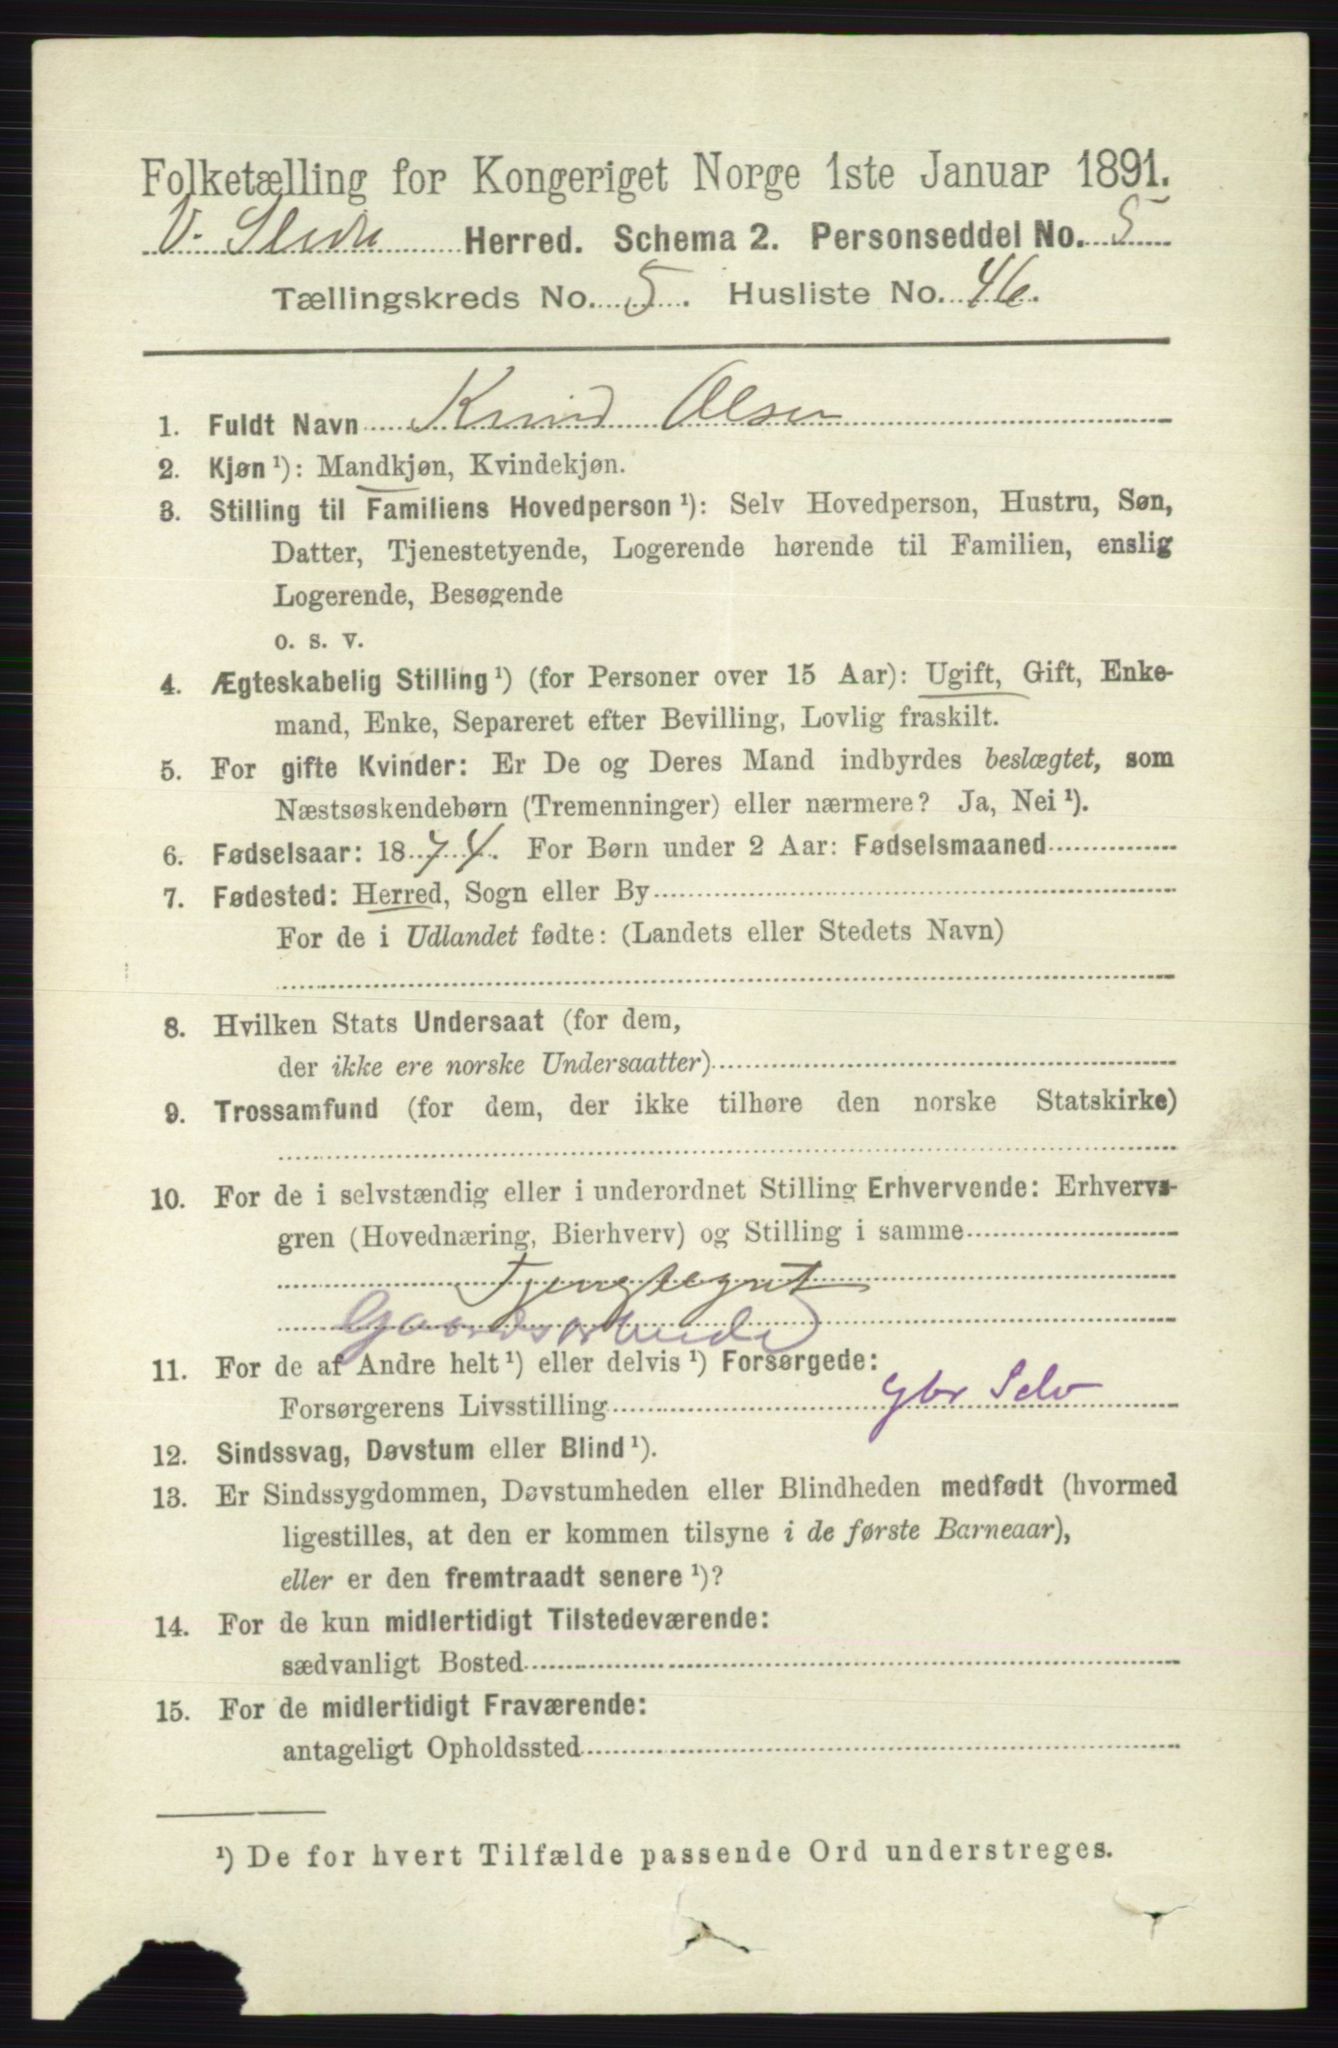 Folketælling for Kongeriget Norge 1ste Januar 1891.
V. Slidre Herred. Schema 2. Personseddel No. 5
Tællingskreds No. 5. Husliste No. 46.
1. Fuldt Navn Knud Olsen
2. Kjøn ¹): Mandkjøn, Kvindekjøn.
3. Stilling til Familiens Hovedperson ¹): Selv Hovedperson, Hustru, Søn,
Datter, Tjenestetyende, Logerende hørende til Familien, enslig
Logerende, Besøgende
o. s. v.
4. Ægteskabelig Stilling ¹) (for Personer over 15 Aar): Ugift, Gift, Enke-
mand, Enke, Separeret efter Bevilling, Lovlig fraskilt.
5. For gifte Kvinder: Er De og Deres Mand indbyrdes beslægtet, som
Næstsøskendebørn (Tremenninger) eller nærmere? Ja, Nei ¹).
6. Fødselsaar: 1874. For Børn under 2 Aar: Fødselsmaaned
7. Fødested: Herred, Sogn eller By
For de i Udlandet fødte: (Landets eller Stedets Navn)
8. Hvilken Stats Undersaat (for dem,
der ikke ere norske Undersaatter)
9. Trossamfund (for dem, der ikke tilhøre den norske Statskirke)
10. For de i selvstændig eller i underordnet Stilling Erhvervende: Erhvervs-
gren (Hovednæring, Bierhverv) og Stilling i samme
Tjenstegut
Gaardsarbeide
11. For de af Andre helt ¹) eller delvis ¹) Forsørgede:
Forsørgerens Livsstilling Gbr Selv
12. Sindssvag, Døvstum eller Blind ¹).
13. Er Sindssygdommen, Døvstumheden eller Blindheden medfødt (hvormed
ligestilles, at den er kommen tilsyne i de første Barneaar),
eller er den fremtraadt senere ¹)?
14. For de kun midlertidigt Tilstedeværende:
sædvanligt Bosted
15. For de midlertidigt Fraværende:
antageligt Opholdssted
¹) De for hvert Tilfælde passende Ord understreges.